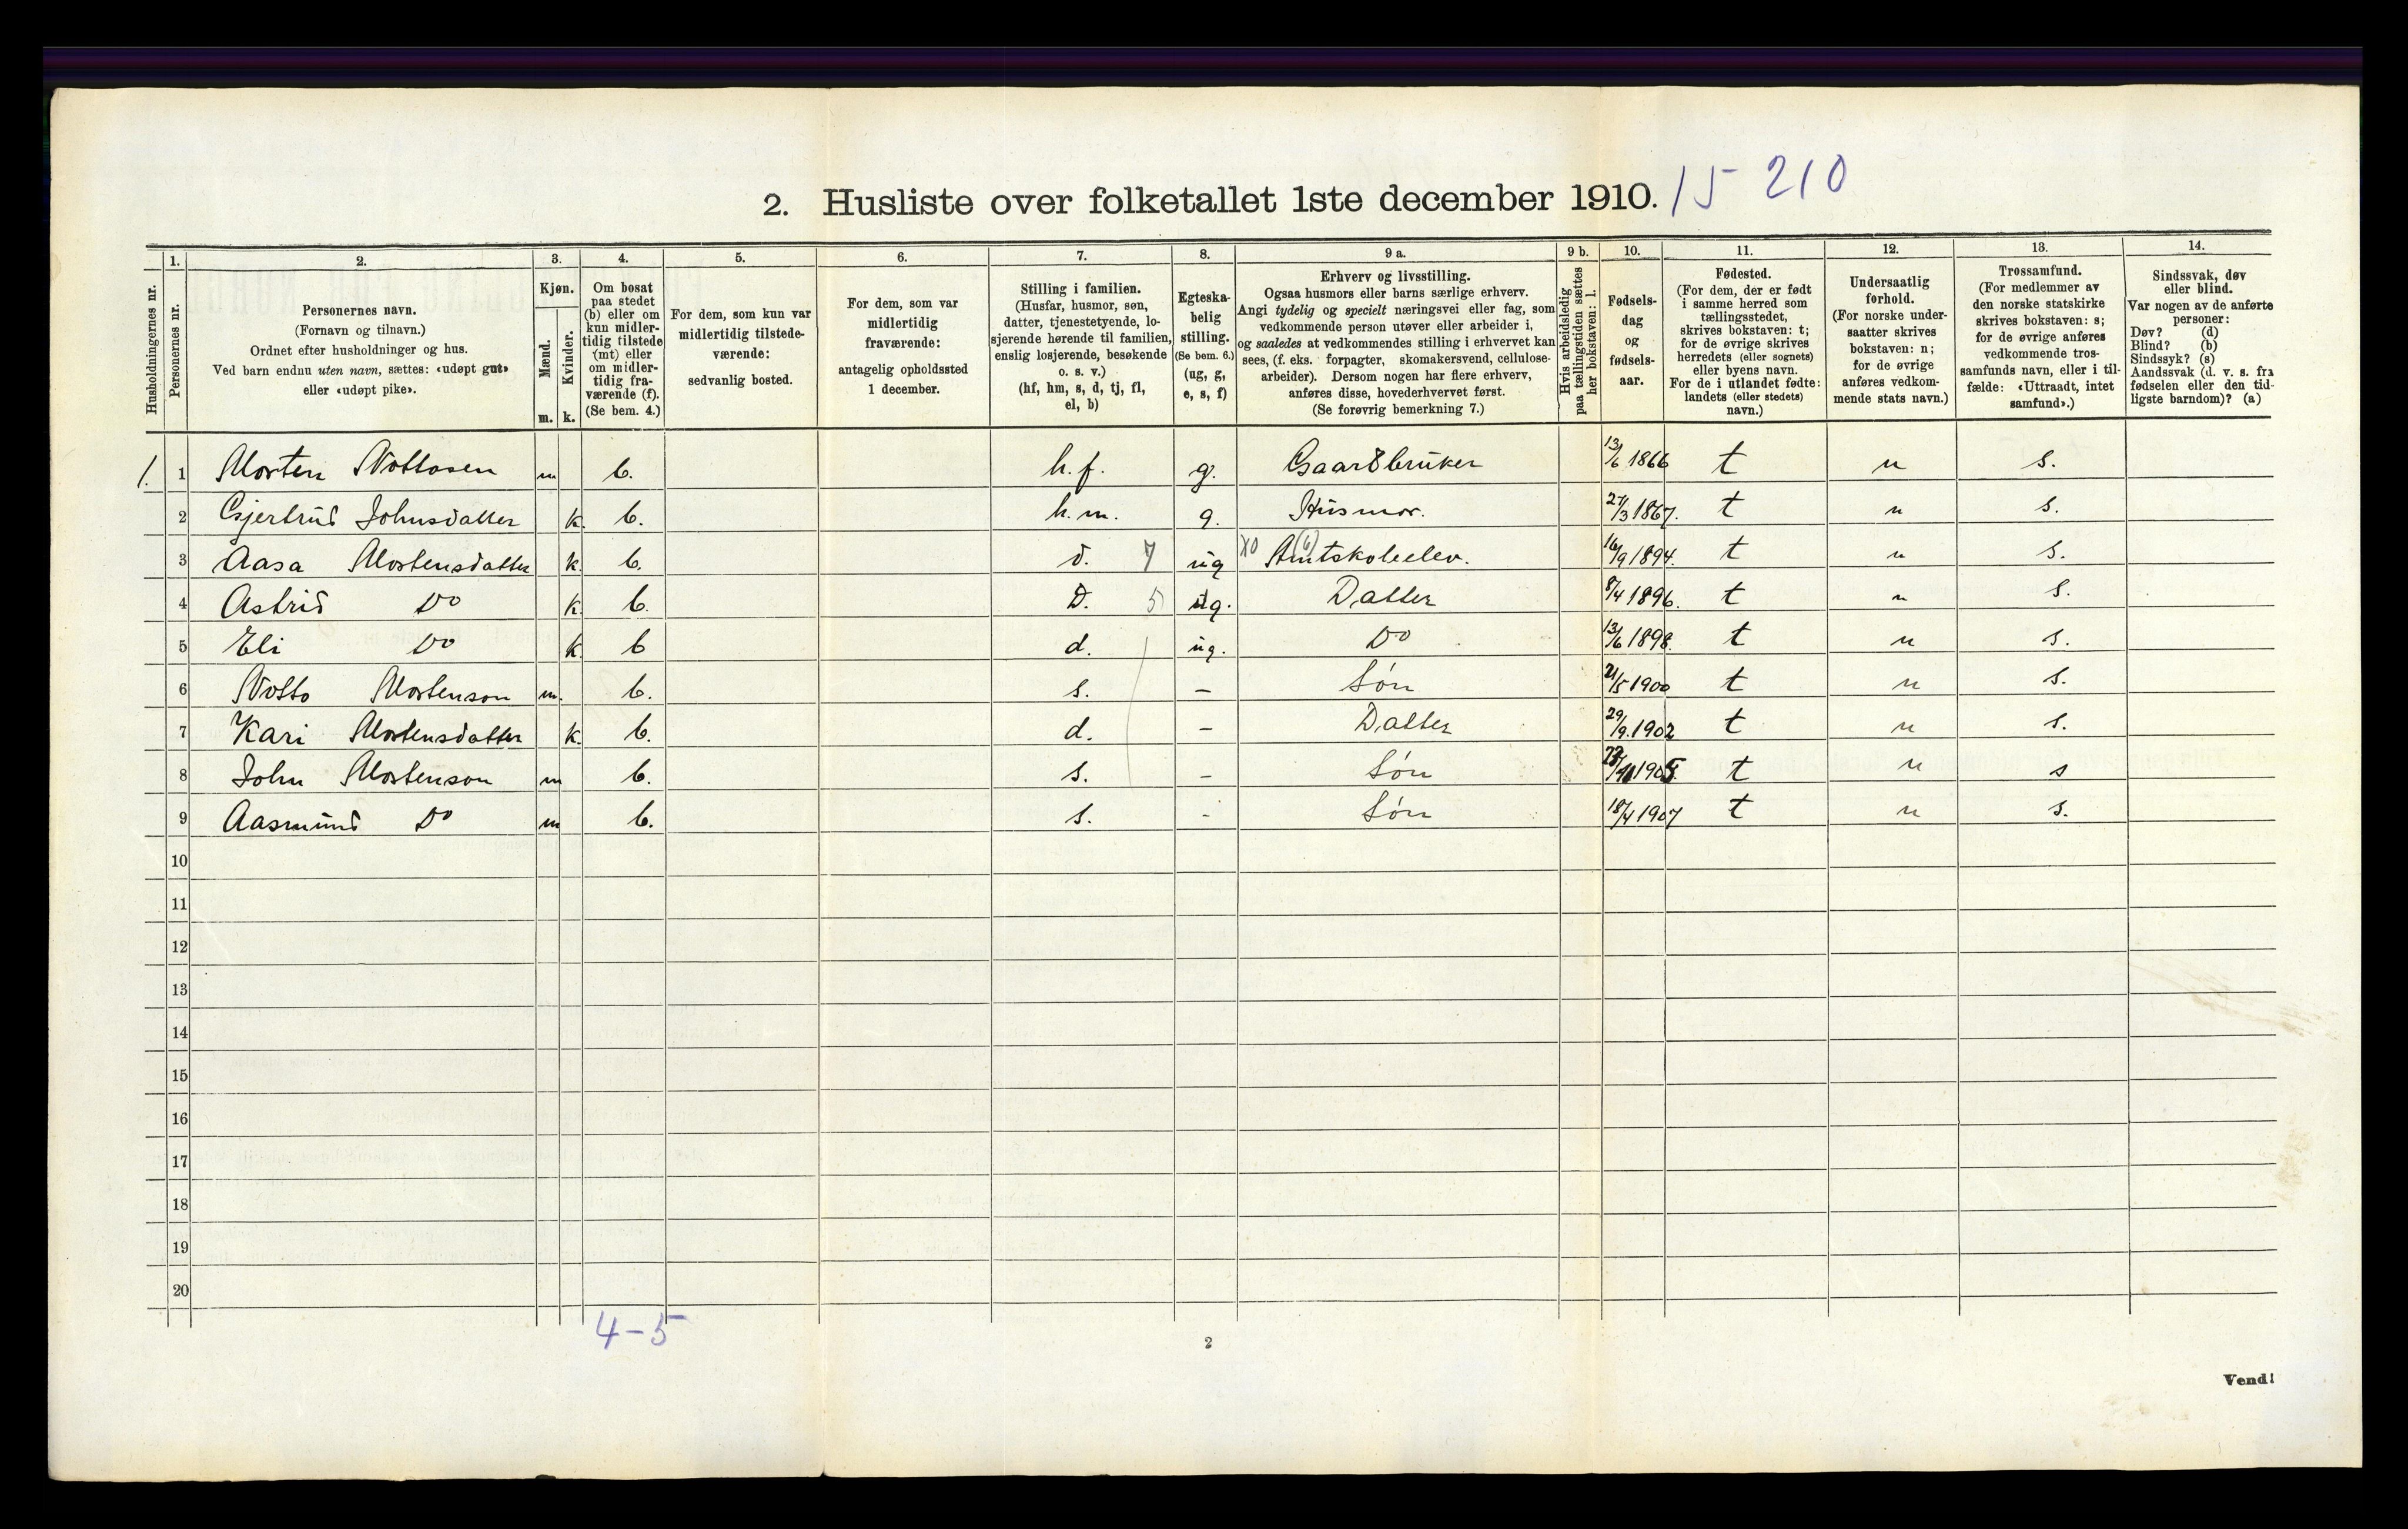 2. Husliste over folketallet 1ste december 1910. 15 210
Husholdningernes nr.
1. Personernes nr.
2. Personernes navn.
(Fornavn og tilnavn.)
Ordnet efter husholdninger og hus.
Ved barn endnu uten navn, sættes: «udøpt gut»
eller «udøpt pike».
3. Kjøn.
Mænd. m.
Kvinder. k.
4. Om bosat
paa stedet
(b) eller om
kun midler-
tidig tilstede
(mt) eller
om midler-
tidig fra-
værende (f).
(Se bem. 4.)
5. For dem, som kun var
midlertidig tilstede-
værende:
sedvanlig bosted.
6. For dem, som var
midlertidig
fraværende:
antagelig opholdssted
1 december.
7. Stilling i familien.
(Husfar, husmor, søn,
datter, tjenestetyende, lo-
sjerende hørende til familien,
enslig losjerende, besøkende
o. s. v.)
(hf, hm, s, d, tj, fl,
el, b)
8. Egteska-
belig
stilling.
(Se bem. 6.)
(ug, g,
e, s, f)
9 a. Erhverv og livsstilling.
Ogsaa husmors eller barns særlige erhverv.
Angi tydelig og specielt næringsvei eller fag, som
vedkommende person utøver eller arbeider i,
og saaledes at vedkommendes stilling i erhvervet kan
sees, (f. eks. forpagter, skomakersvend, cellulose-
arbeider). Dersom nogen har flere erhverv,
anføres disse, hovederhvervet først.
(Se forøvrig bemerkning 7.)
9 b. Hvis arbeidsledig
paa tællingstiden sættes
her bokstaven: l.
10. Fødsels-
dag
og
fødsels-
aar.
11. Fødested.
(For dem, der er født
i samme herred som
tællingsstedet,
skrives bokstaven: t;
for de øvrige skrives
herredets (eller sognets)
eller byens navn.
For de i utlandet fødte:
landets (eller stedets)
navn.)
12. Undersaatlig
forhold.
(For norske under-
saatter skrives
bokstaven: n;
for de øvrige
anføres vedkom-
mende stats navn.)
13. Trossamfund.
(For medlemmer av
den norske statskirke
skrives bokstaven: s;
for de øvrige anføres
vedkommende tros-
samfunds navn, eller i til-
fælde: «Uttraadt, intet
samfund».)
14. Sindssvak, døv
eller blind.
Var nogen av de anførte
personer:
Døv? (d)
Blind? (b)
Sindssyk? (s)
Aandssvak (d. v. s. fra
fødselen eller den tid-
ligste barndom)? (a)
1. 1 Morten Nottosen m b. h.f. g. Gaardbruker 13/6 1866 t n s.
2 Gjertrud Johnsdatter k. b. h.m. g. Husmor. 1867. t n s.
3 Aasa Mortensdatter k b. d. 7 ug X0 (6) Amtskoleelev. 16/9 1894. t n s.
4 Astrid Do k. b. D. 5 ug. Datter 8/4 1896. t n s.
5 Eli Do k. b d. ug. Do 13/6 1898. t n s.
6 Notto Mortenson m. b. s. – Søn 21/5 1900 t n s.
7 Kari Mortensdatter k. b. d. – Datter 29/9. 1902 t n s.
8 John Mortenson m b. s. – Søn 1905. t n s
9 Aasmund Do m b. s. - Søn 18/4 1907 t n s.
10
11
12
13
14
15
16
17
18
19
20
4-5
2
Vend!